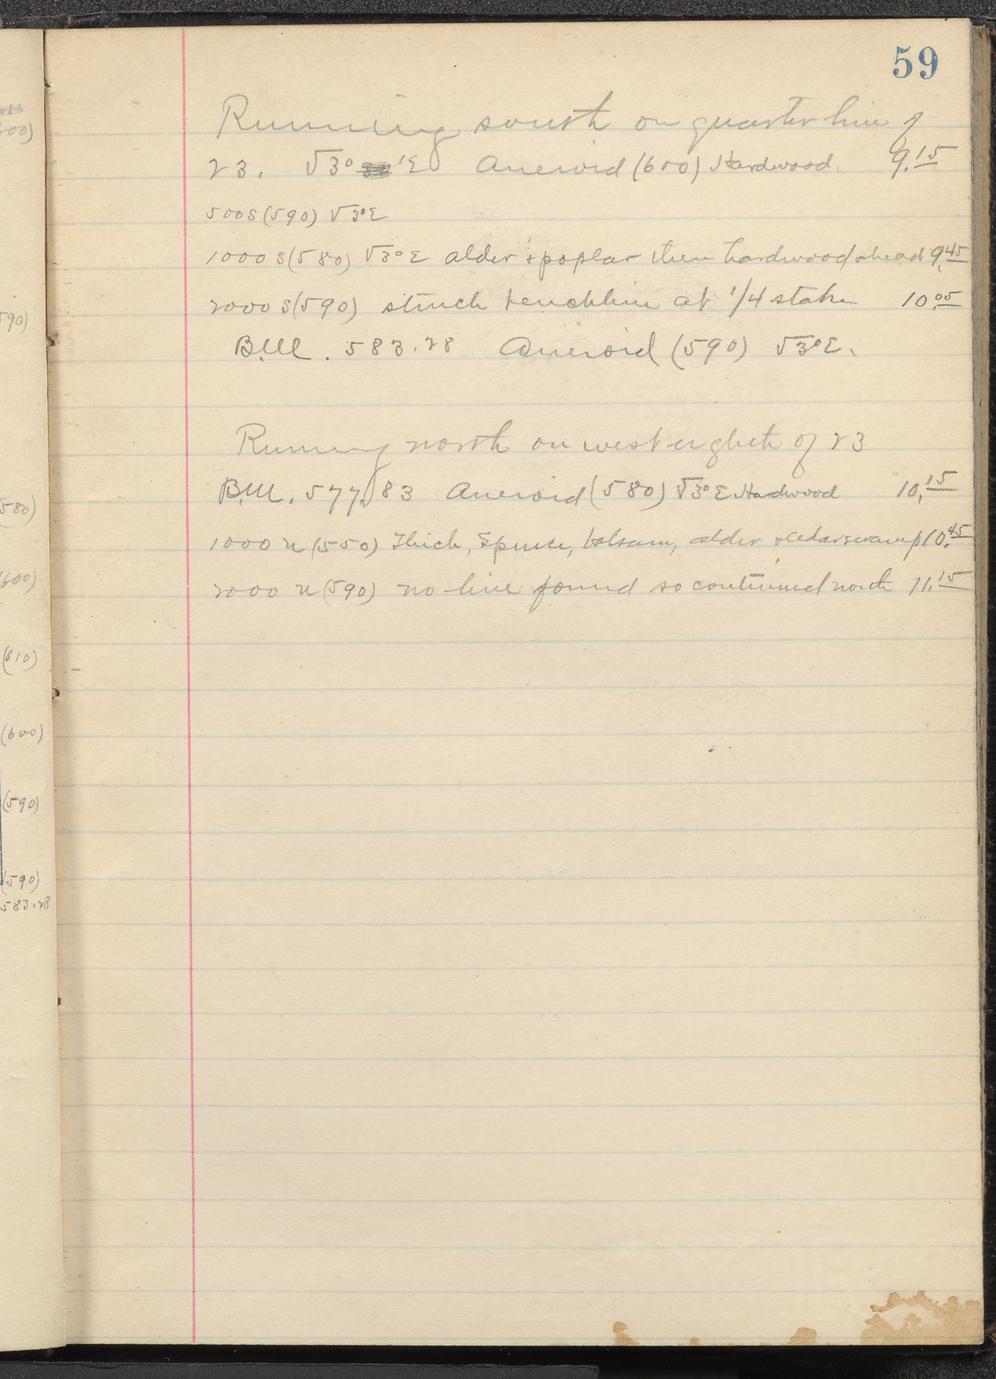 59
Running south on quarter line of
23. V3° 1'E Aneroid (600) Hardwood. 9.15
500 S (590) V3°E
1000 S (580) V3°E alder + poplar then hardwood ahead 9.45
2000 S (590) struck benchline at 1/4 stake 10.05
B.M. 583.28 Aneroid (590) V3°E.
Running north on west eighth of 23
B.M. 577.83 Aneroid (580) V3°E Hardwood 10.15
1000 N (550) Thick, Spruce, balsam, alder + cedar swamp 10.45
2000 N (590) no line found so continued north 11.15
00)
590)
580)
(600)
(610)
(600)
(590)
(590)
583.28